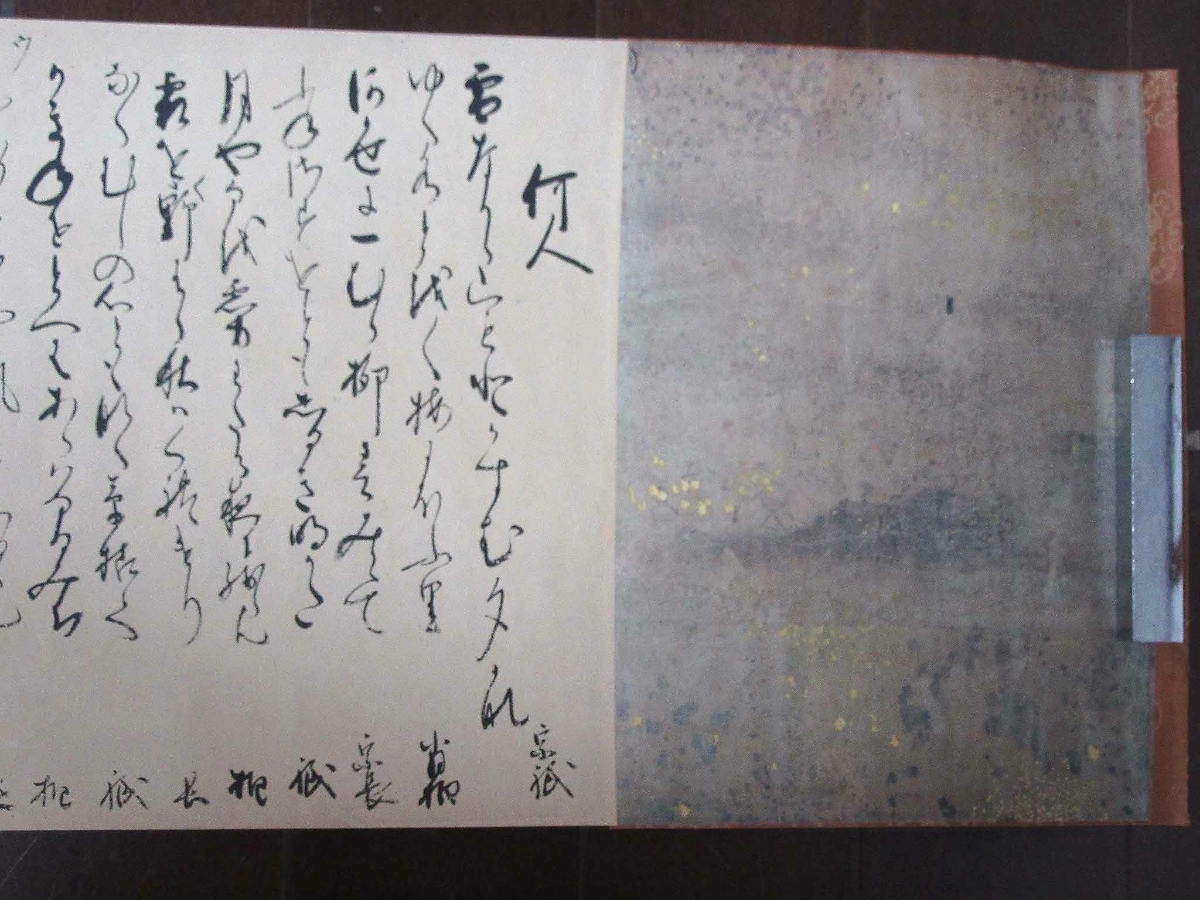 何人
雪なから山もとかすむ夕かな 宗祇
ゆく水とほく梅にほふ里 肖柏
河せに一むら柳春みえて 宗長
舟さすをともしるき明かた 祇
月や猶霧わたる夜に残らん 柏
霜をく野はら秋はくれけり 長
なくむしの心ともなく草枯て 祇
かきねをとへはあらはなるみち 柏